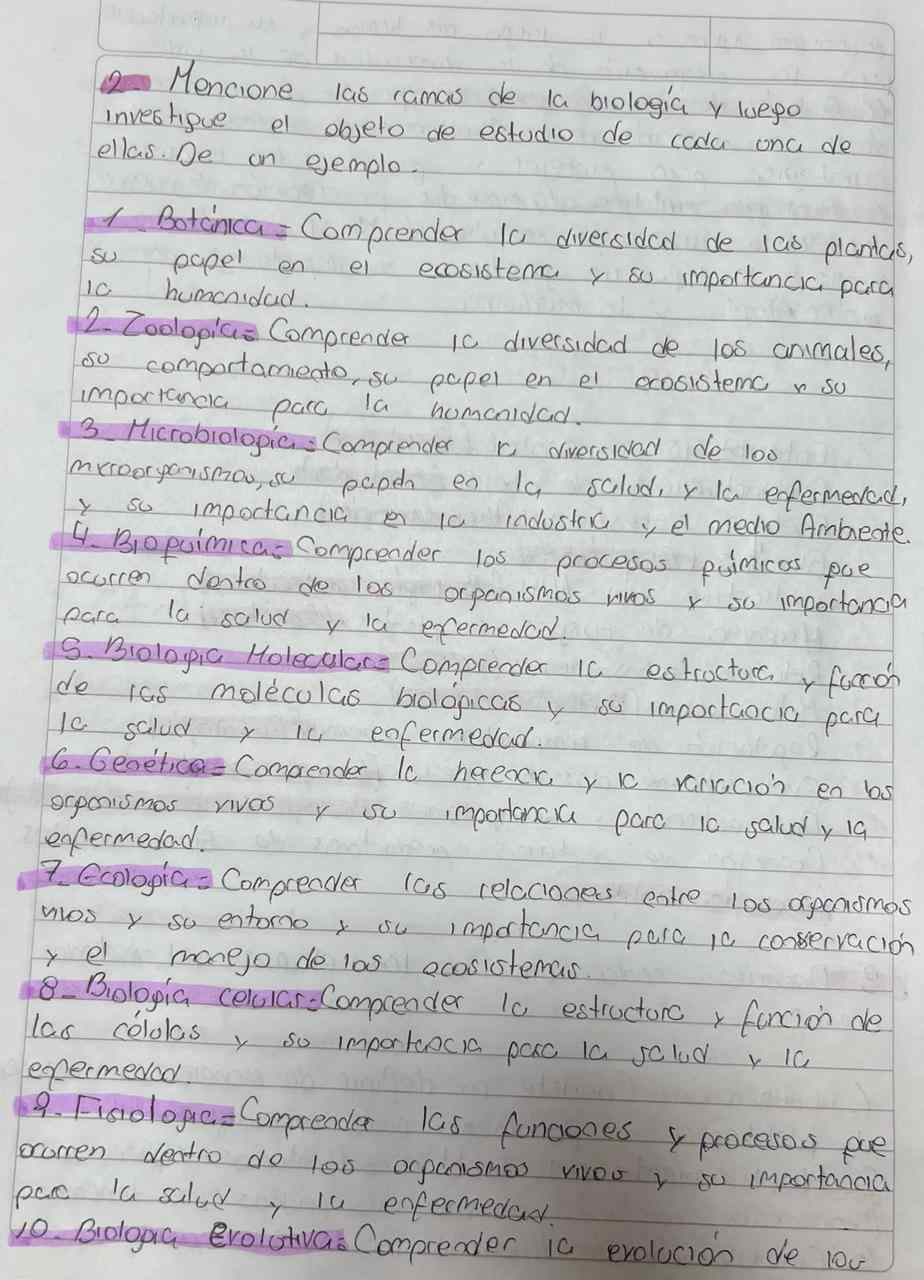 2- Mencione las ramas de la biología y luego
investigue el objeto de estudio de cada una de
ellas. De un ejemplo.
1 Botánica = Comprender la diversidad de las plantas,
su papel en el ecosistema y su importancia para
la humanidad.
2- Zoología = Comprender la diversidad de los animales,
su comportamiento, su papel en el ecosistema y su
importancia para la humanidad.
3- Microbiología = Comprender la diversidad de los
microorganismos, su papel en la salud, y la enfermedad,
y su importancia en la industria y el medio Ambiente.
4- Bioquímica = Comprender los procesos químicos que
ocurren dentro de los organismos vivos y su importancia
para la salud y la enfermedad.
5- Biología Molecular = Comprender la estructura y función
de las moléculas biológicas y su importancia para
la salud y la enfermedad.
6- Genética = Comprender la herencia y la variación en los
organismos vivos y su importancia para la salud y la
enfermedad.
7- Ecología = Comprender las relaciones entre los organismos
vivos y su entorno y su importancia para la conservación
y el manejo de los ecosistemas.
8- Biología celular = Comprender la estructura y función de
las células y su importancia para la salud y la
enfermedad.
9- Fisiología = Comprender las funciones y procesos que
ocurren dentro de los organismos vivos y su importancia
para la salud y la enfermedad.
10- Biología evolutiva = Comprender la evolución de los